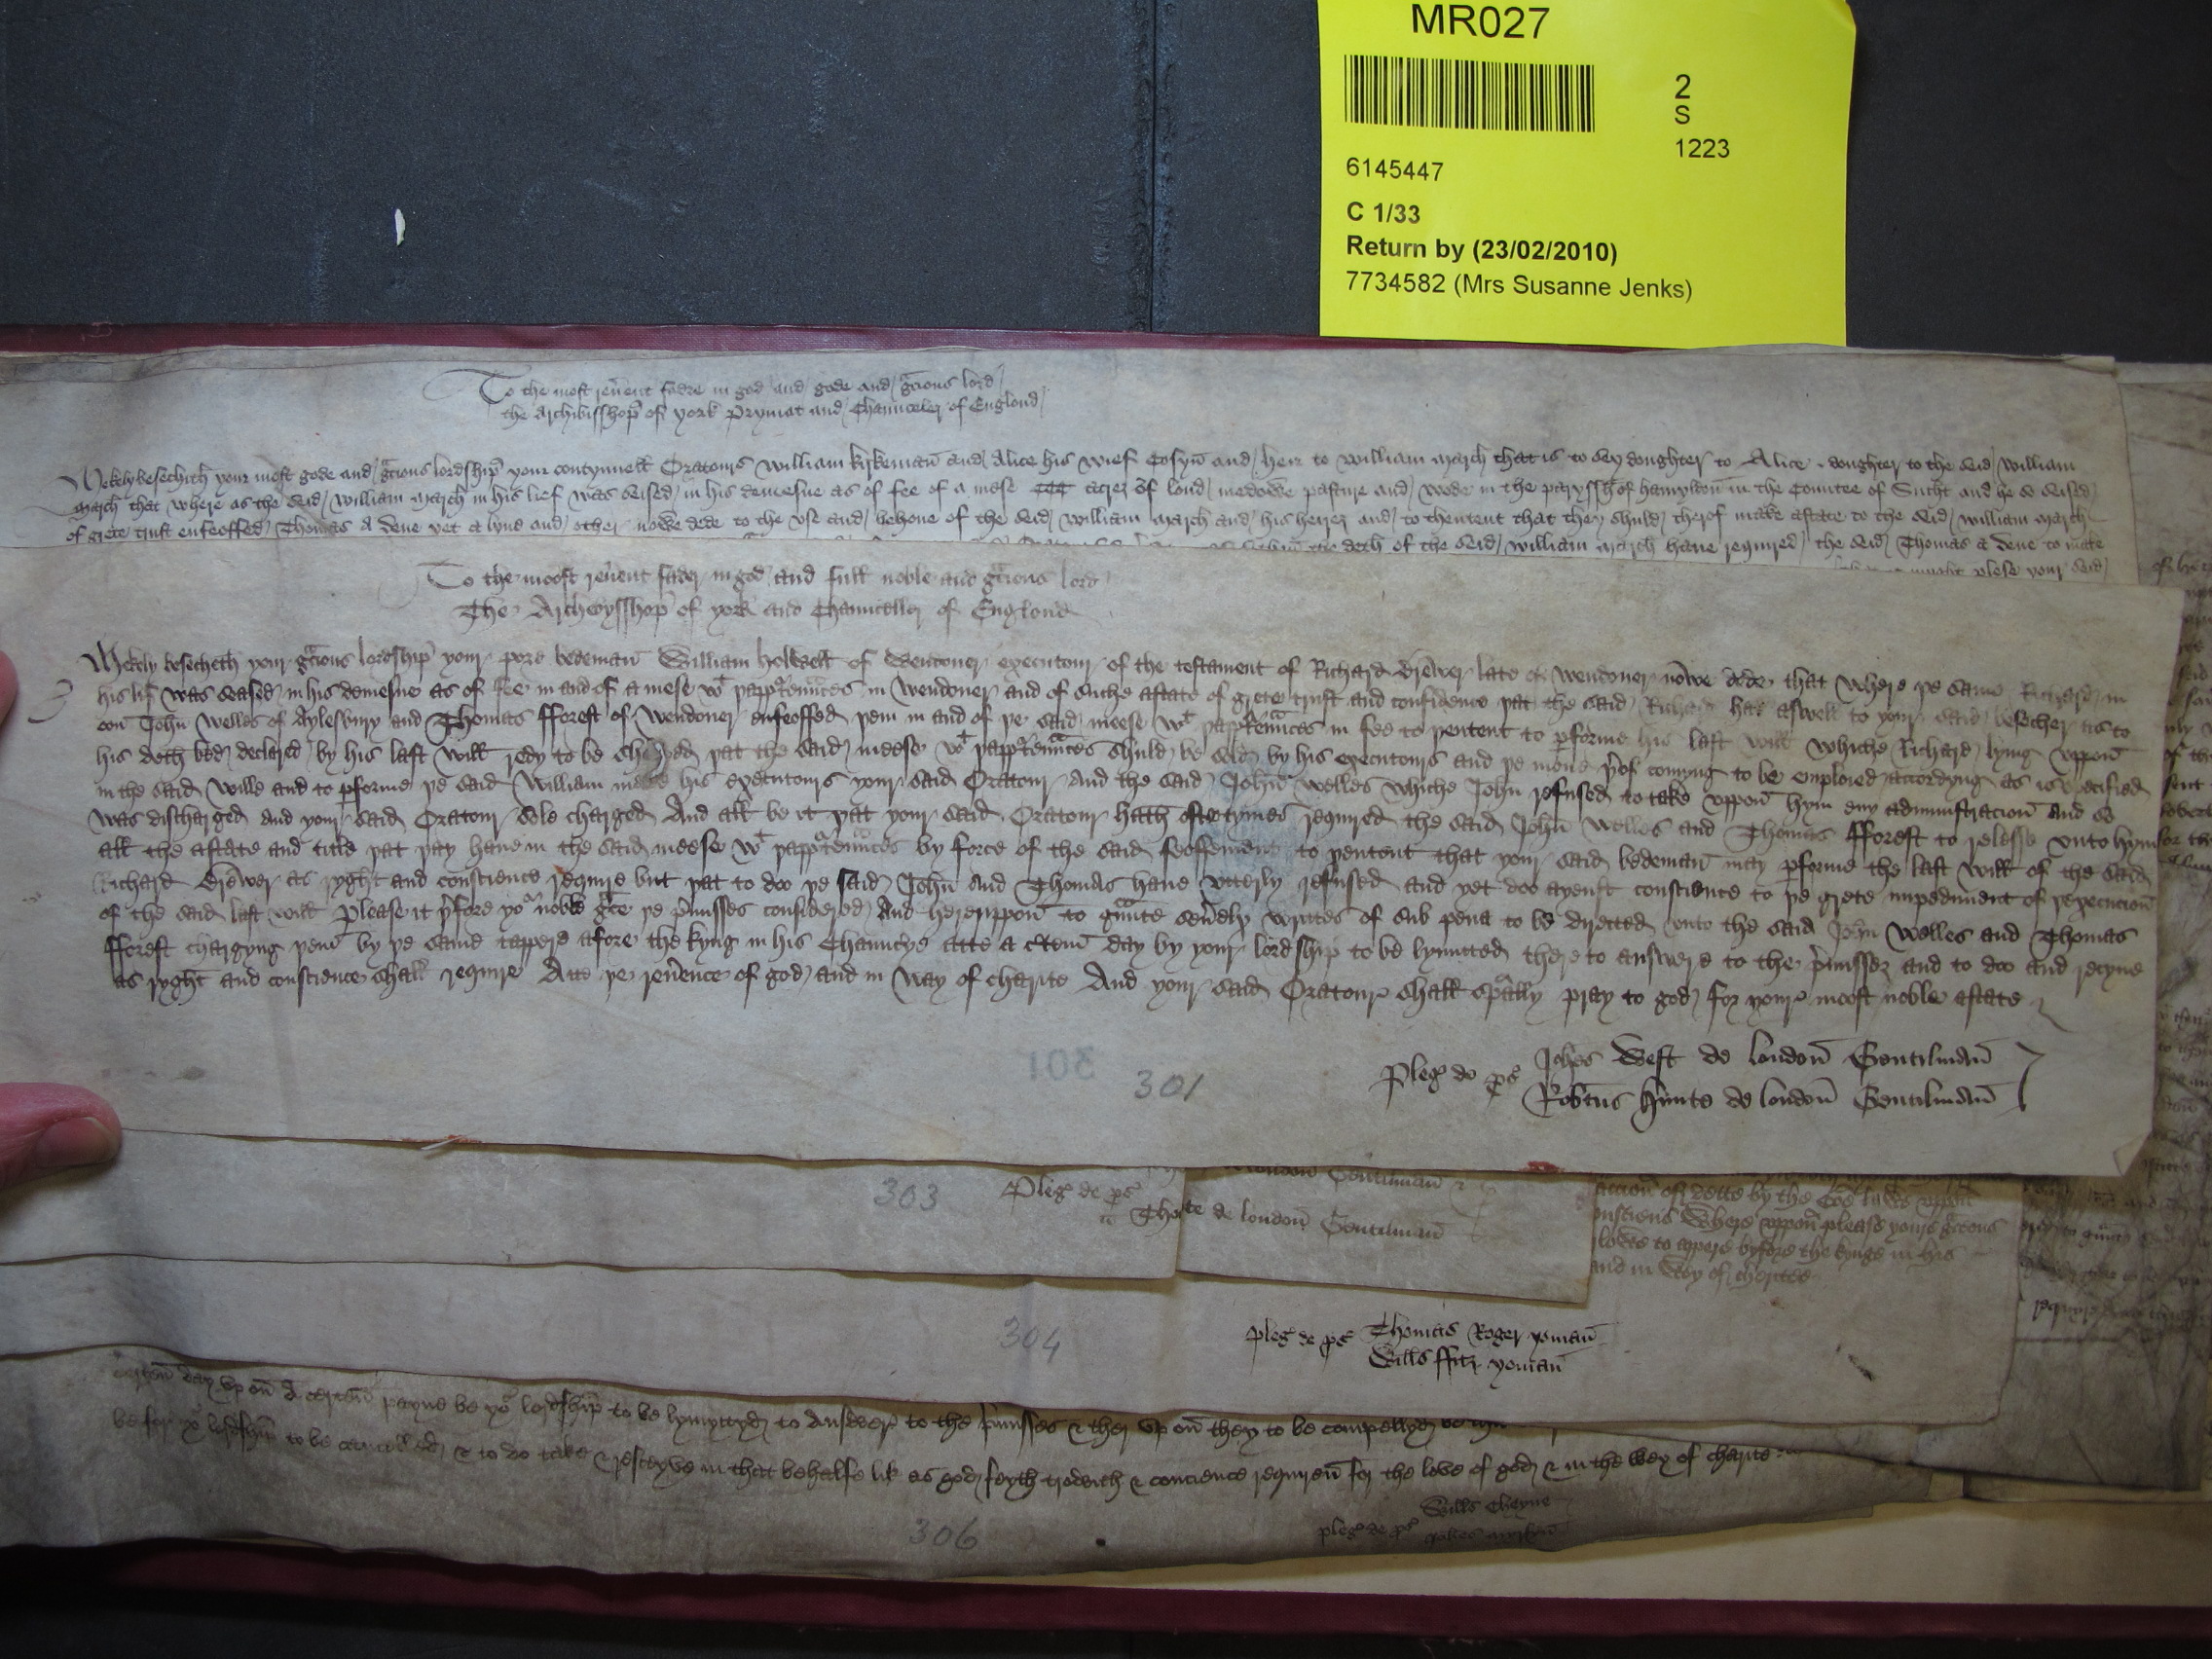 MR027
2
S
1223
6145447
C 1/33
Return by (23/02/2010)
7734582 (Mrs Susanne Jenks)
To the most reũent fadre in god and gode and gͣcious lord
the Archibisshop̃ of york Prymat and Chaunceler of Englond
Mekely besechith your most gode and gͣcious lordship̃ your contynuell Oratours William kyrkeman̄ and Alice his wief Cosyn̄ and heir to William march that is to sey doughter to Alice doughter to the seid William
march that where as the seid William march in his lief was seised in his demesne as of fee of a mese acrez of lond medowe pasture and wode in the paryssh of hamylton̄ in the Countee of and he so seised
of grete trust enfeoffed Thomas A dene yet a lyue and other nowe dede to the vse and behoue of the seid William march and his heirez and to thentent that they shuld therof make astate to the seid William march
deth of the seid William march haue required the seid Thomas a dene to make
myght plese your seid
To the moost reũent fader in god and full noble and gͣcious lord
The Archebysshop̃ of york and Chaunceller of Englond
Mekely besecheth your gͣcious lordship̃ your pore bedeman̄ William holwell of Wendouer executour of the testament of Richard Brewer late of Wendouer nowe dede that where þe same Richard in
his lif was seased in his demesne as of fee in and of a mese wͭ þappͬtenaũces in Wendouer and of suche astate of grete trust and confidence þat the said Richard had aswell to your said besecher as to
oon John Welles of Aylesbury and Thomas fforest of Wendouer enfeoffed þem in and of þe said meese wͭ þappͬtenaũces in fee to þentent to ꝑforme his last will Whiche Richard lyyng vppon̄
his deth bed declared by his last will redy to be shewed þat the said meese wͭ þappͬtenaũces shuld be sold by his executours and þe mone þ̉of comyng to be employed accordyng as is specified
in the said Wille and to ꝑforme þe said William made his executours your said Oratour and the said John̄ Welles whiche John refused to take vppon̄ hym eny admynistracion̄ and so
was discharged and your said Oratour sole charged And all be it þat your said Oratour hath oftetymes required the said John Welles and Thomas fforest to relesse vnto hym
all the astate and title þat þay haue in the said meese wͭ þappͬtenaũces by force of the said feoffement to þentent that your said bedeman̄ may ꝑforme the last will of the said
Richard Brewer as ryght and conscience require but þat to doo þe said John̄ and Thomas haue vtterly refused and yet doo ayenst conscience to þe grete impediment of þexecucion̄
of the said last will Please it þ̉fore yoͬ noble gͣce þe p̉misses considered And hereuppon̄ to gͣunte seũelly writtes of sub pena to be directed vnto the said John̄ Welles and Thomas
fforest chargyng þem by þe same tappere afore the kyng in his Chauncͬye atte a c̉tein day by your lordship to be lymitted there to answere to the p̉missez and to doo and receyue
as ryght and conscience shall require Atte þe reũence of god and in way of charite And your said Oratour shall sp̄ally pray to god for your moost noble astate
Pleg̉ de ꝓs̉ Joh̄es West de london̄ Gentilman̄
Rob̄tus hunte de london̄ Gentilman̄
301
301
303
Pleg̉ de ꝓs̉
london̄ Gentilman̄
de london̄ Gentilman̄
accion̄ of dette by the
Where vppon̄ please youre gͣcious
to apere byfore the kynge in his
and in Wey of charitee
304
pleg̉ de ꝓs̉ Thomas Roger yoman̄
Will̄s ffitz yoman̄
day vp on̄ a certen̄ payne be yoͬ lordship to be lymyttyd to Answere to the p̉misses & ther vp on̄ they to be compellyd
be for yoͬ lordship̄ to be & to do take & resceyve in that behalfe lik as god feyth trowith & concience requiren̄ for the love of god & in the wey of charite
306
pleg̉ de ꝓs̉ Will̄s Cheyne